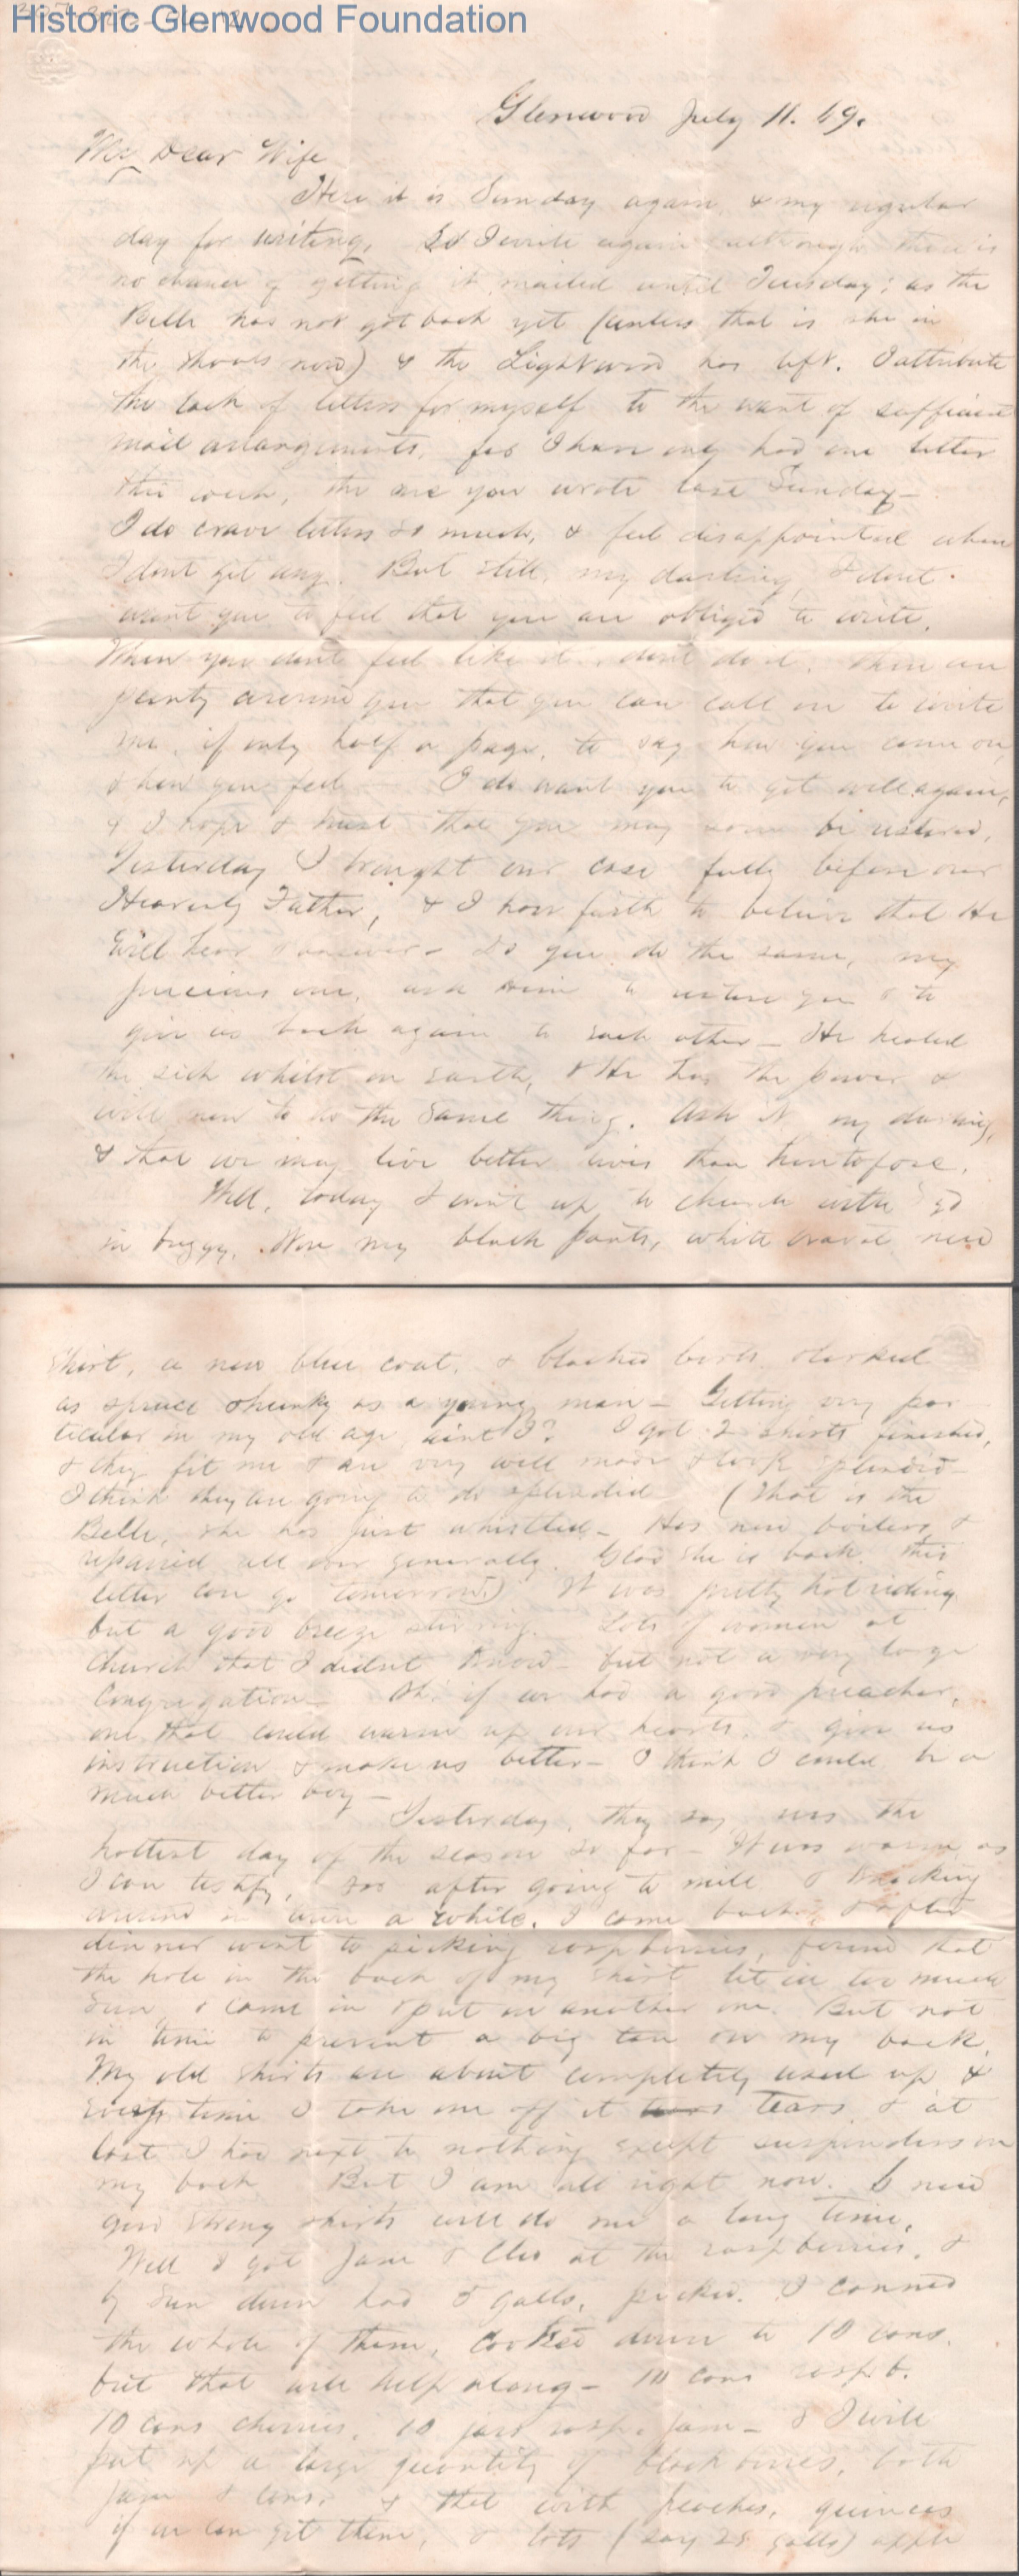 Historic Glenwood Foundation
Glenwood July 11. 69.
My Dear Wife
Here it is Sunday again, & my regular
day for writing. So I write again although there is
no chance of getting it mailed until Tuesday; as the
Belle has not got back yet (unless that is she in
the shoals now) & the Lightwood has left. I attribute
the lack of letters for myself to the want of sufficient
mail arrangements, for I have only had one letter
this week, the one you wrote last Sunday—
I do crave letters so much, & feel disappointed when
I dont get any. But still, my darling, I dont
want you to feel that you are obliged to write.
When you dont feel like it, dont do it. There are
plenty around you that you can call on to write
me, if only half a page, to say how you come on,
& how you feel— I do want you to get well again,
& I hope & trust that you may soon be restored.
Yesterday I brought our case fully before our
Heavenly Father, & I have faith to believe that He
will hear & answer— Do you do the same, my
precious one, ask Him to restore you & to
give us back again to each other— He healed
the sick whilst on earth, & He has the power &
will now to do the same thing. Ask it my darling,
& that we may live better lives than heretofore.
Well, today I went up to church with Ed
in buggy. Wore my black pants, white cravat, new
shirt, a new blue coat, & blacked boots. Looked
as spruce & as a young man— Getting very par
ticular in my old age, aint I? I got 2 shirts finished,
& they fit me & are very well made & look splendid—
I think they are going to do splendid (That is the
Belle, she has just whistled— Has new boilers, &
repaired all over generally. Glad she is back. This
letter can go tomorrow.) It was pretty hot riding
but a good breeze stirring. Lots of women at
Church that I didnt know— but not a very large
Congregation— Oh! if we had a good preacher,
one that could warm up our hearts, & give us
instruction & make us better— I think I could be a
much better boy—
Yesterday, they say, was the
hottest day of the season so far— It was warm as
I can testify, for after going to mill & knocking
around in town a while, I came back, & after
dinner went to picking raspberries, found that
the hole in the back of my shirt let in too much
sun, & came in & put on another one. But not
in time to prevent a big tan on my back.
My old shirts are about completely used up &
every time I take one off it tears, & at
last I had next to nothing except suspenders on
my back But I am all right now. 6 new
good strong shirts will do me a long time.
Well I got Jane & Cleo at the raspberries, &
by sun down had 5 galls. picked. I canned
the whole of them, cooked down to 10 cans.
but that will help along— 10 cans raspb.
10 cans cherries, 10 jars rasp. jam— & I will
put up a large quantity of blackberries, both
jam & cans. & that with peaches, quinces
if we can get them, & lots (say 25 galls) apple